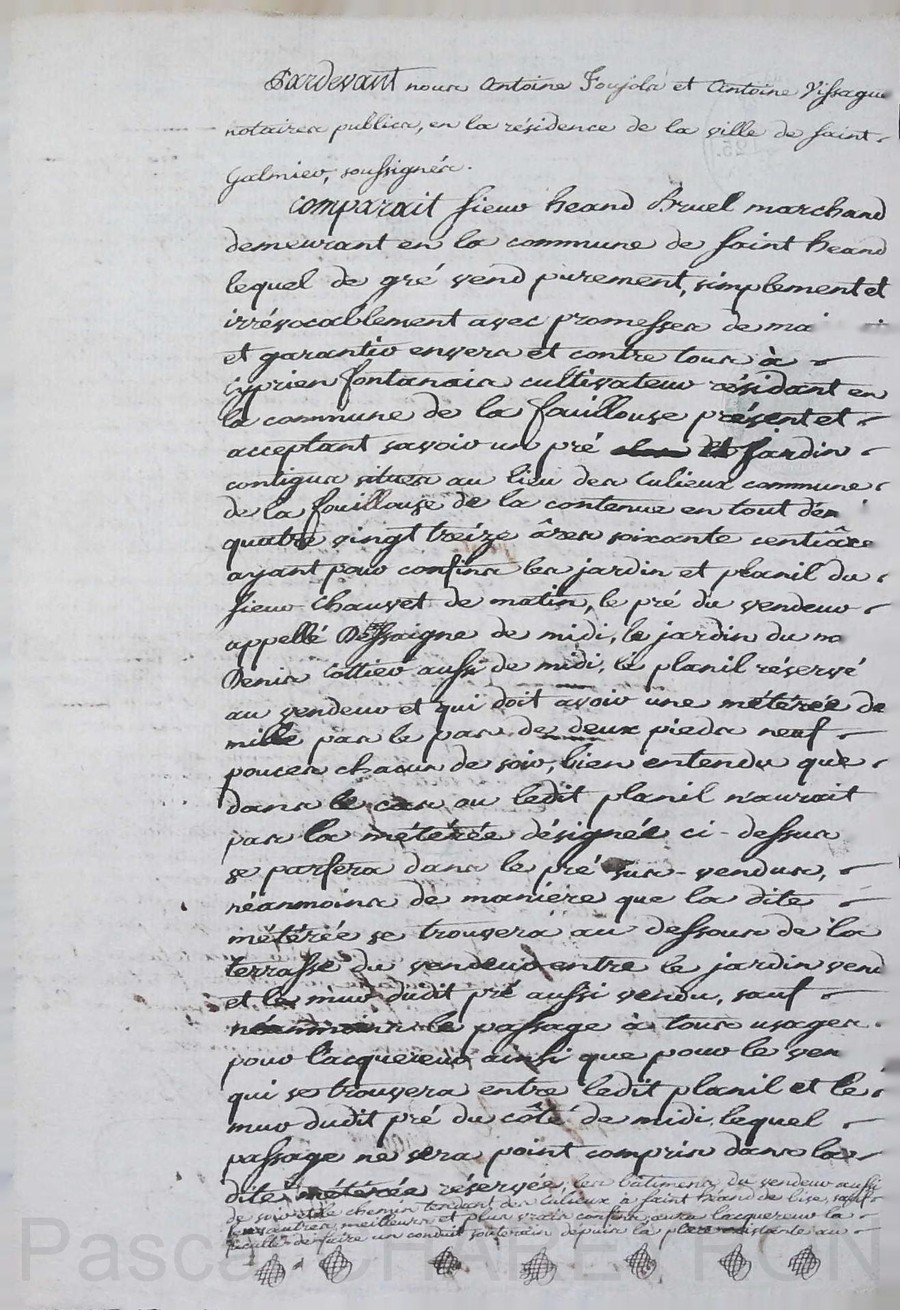 Pardevant nous Antoine Foujols et Antoine Vissague
notaires publics, en la résidence de la ville de saint-
Galmier, soussignés.
Comparait sieur heand Bruel marchand
demeurant en la commune de saint heand
lequel de gré vend purement, simplement et
irrévocablement avec promesses de
et garantir envers et contre tous à
Cyprien fontanais cultivateur résidant en
la commune de la fouillouse présent et
acceptant savoir un pré et jardin
contigus situés au lieu des Culieux commune
de la fouillouse de la contenue en tout de
quatre vingt treize âres soixante centiâre
ayant pour confins les jardin et planil du
sieur Chauvet de matin, le pré du vendeur
appellé Dessaigne de midi, le jardin du
Denis Cottier aussi de midi, le planil réservé
au vendeur et qui doit avoir une métérée de
mille pas le pas de deux pieds neuf
pouces chacun de soir, bien entendu que
dans le cas ou ledit planil n'aurait
pas la métérée désignée ci-dessus
se parfera dans le pré sus-vendus,
néanmoins de manière que la dite
métérée se trouvera au dessous de la
terrasse du vendeur entre le jardin vend
et le mur dudit pré aussi vendu, sauf
le passage à tous usages
pour l'acquereur ainsi que pour le ven
qui se trouvera entre ledit planil et le
mur dudit pré du côté de midi, lequel
passage ne sera point compris dans la
dite métérée réservée, les batiments du vendeur aussi
de soir et le chemin tendant des Culieux à saint heand de bise, sauf
les autres meilleurs et plus vrais confins, aura l'acquereur la
faculté de faire un conduit souterain depuis la place existante au
Pascal CHARETTON